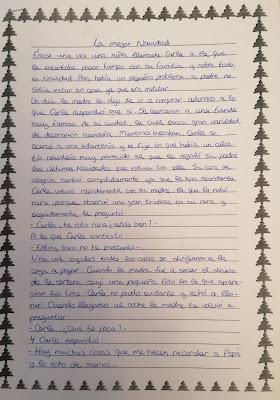 La mejor Navidad
Érase una vez una niña llamada Carla a la que
le encantaba pasar tiempo con su familia y sobre todo
en Navidad. Pero había un pequeño problema, su padre no
solía estar en casa ya que era militar.
Un día la madre le dijo de ir a comprar adornos a lo
que Carla respondió que sí. Se acercaron a una tienda
muy famosa de su ciudad, la cual tenía gran variedad
de decoración navideña. Mientras buscaban, Carla se
acercó a una estantería y se fijó en que había un calce-
tín navideño muy parecido al que le regaló su padre
las últimas Navidades que estuvo con ella. Su cara de
alegría cambió completamente ya que le hizo recordarlo.
Carla volvió rápidamente con su madre, la que la notó
rara porque observó una gran tristeza en su cara y
seguidamente le preguntó:
- Carla, te noto rara, ¿estás bien? -
A lo que Carla contestó:
- Estoy bien no te preocupes -
Una vez cogidas todas las cosas se dirigieron a la
caja a pagar. Cuando la madre fue a sacar el dinero
de la cartera cayó una pequeña foto en la que apare-
cían los tres. Carla no pudo evitarlo y echó a llo-
rar. Cuando llegaron al coche la madre le volvió a
preguntar:
- Carla, ¿Qué te pasa? -
Y Carla respondió:
- Hay muchas cosas que me hacen recordar a Papá
y lo echo de menos. -